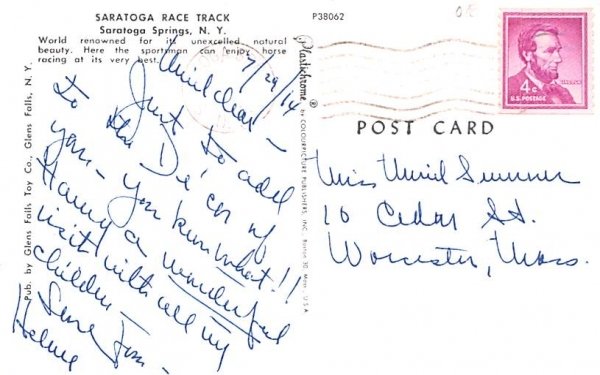 SARATOGA RACE TRACK
Saratoga Springs, N. Y.
World renowned for its unexcelled natural
beauty. Here the sportsman can enjoy horse
racing at its very best.
P38062
Pub. by Glens Falls Toy Co., Glens Falls, N. Y.
Plastichrome ® by COLOURPICTURE PUBLISHERS, INC., Boston 30, Mass., U.S.A.
POST CARD
4¢
U.S. POSTAGE
LINCOLN
Just to add
to
you - you know what!!
Having a wonderful
visit with all my
children -
Love from -
Helene
Miss Muriel Sumner
10 Cedar St.
Worcester, Mass.